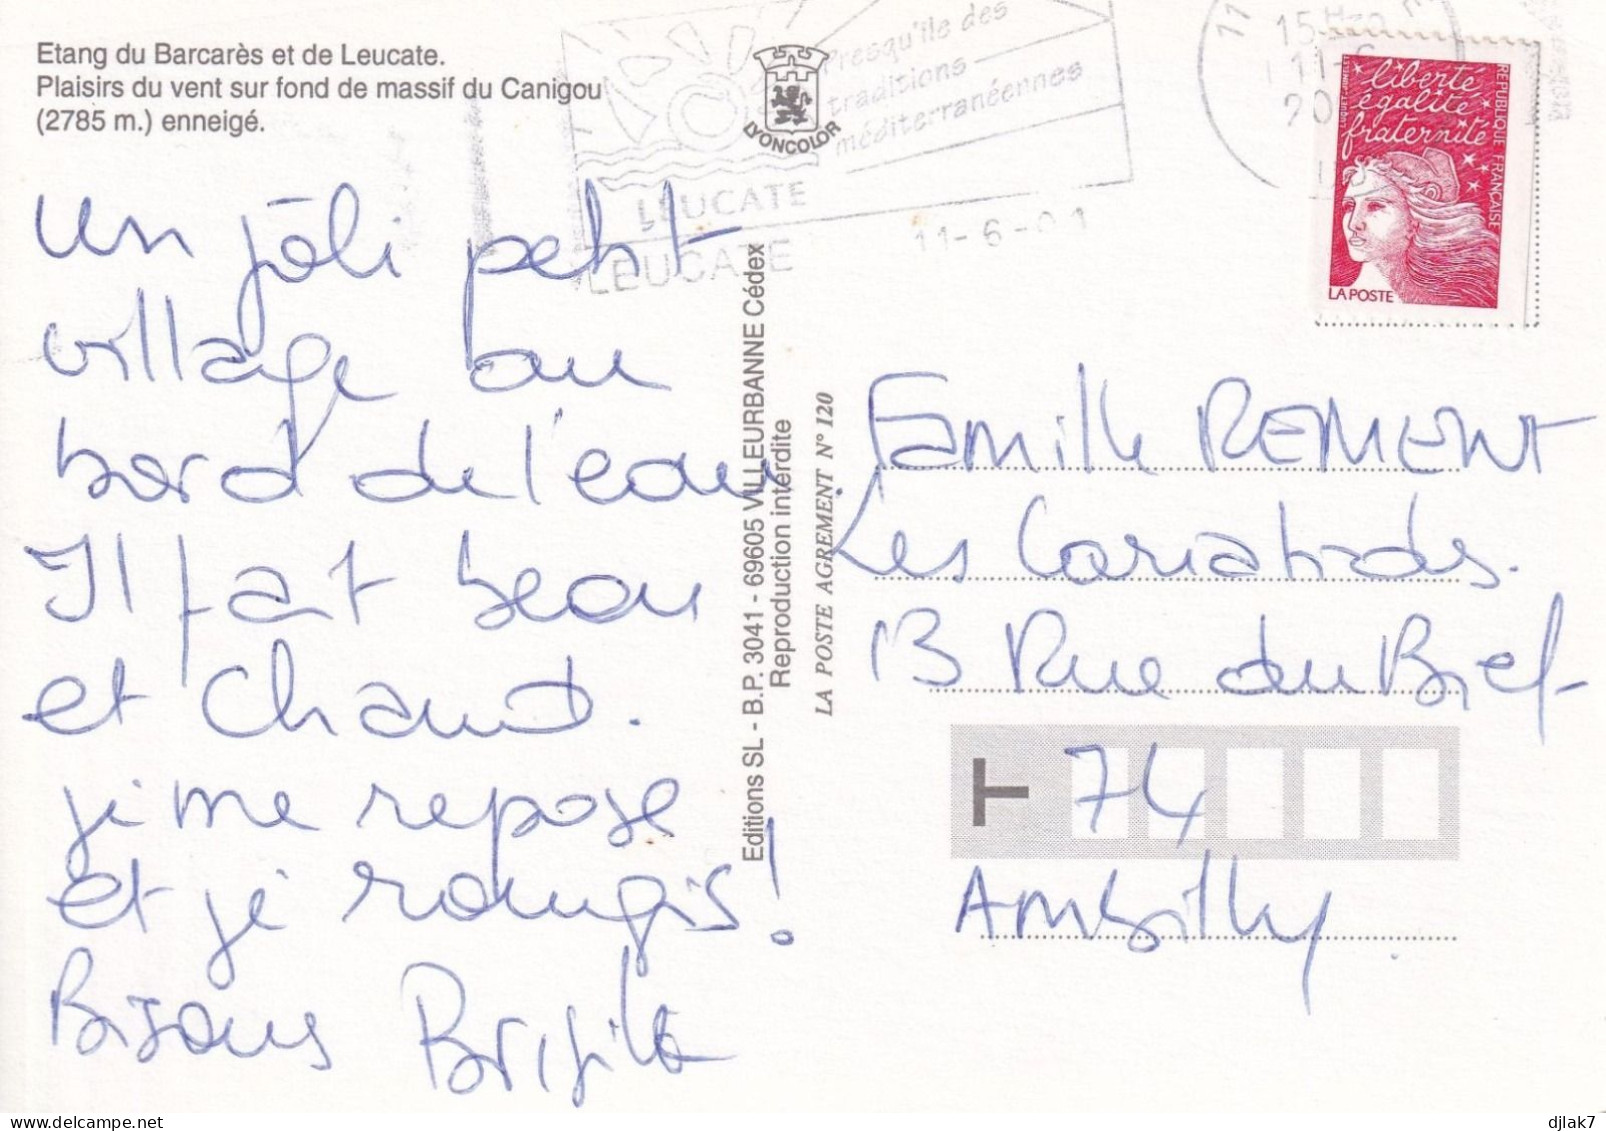 Etang du Barcarès et de Leucate.
Plaisirs du vent sur fond de massif du Canigou
(2785 m.) enneigé.
un joli petit
village au
bord de l'eau.
Il fait beau
et chaud.
je me repose
et je rougis!
Bisous Brigitte
LYONCOLOR
Presqu'île des
traditions
méditerranéennes
LEUCATE
LEUCATE
11-6-01
Editions SL - B.P. 3041 - 69605 VILLEURBANNE Cédex
Reproduction interdite
LA POSTE AGREMENT N° 120
liberté
égalité
fraternité
RÉPUBLIQUE FRANÇAISE
LA POSTE
Famille REMONT
Les Cariatides.
13 Rue du Bief
T 74
Ambilly.
djlak7